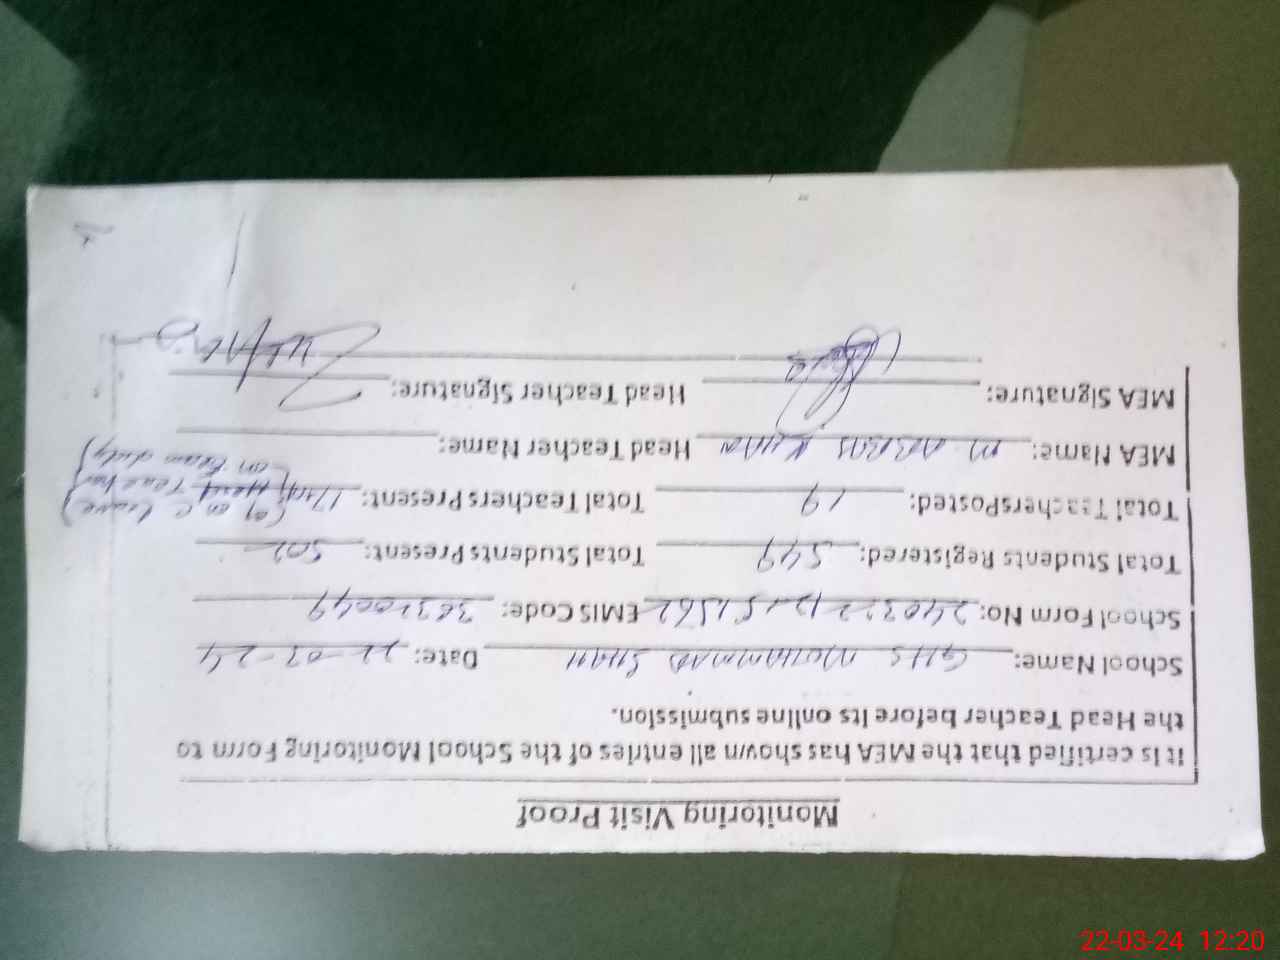 Monitoring Visit Proof
It is certified that the MEA has shown all entries of the School Monitoring Form to
the Head Teacher before its online submission.
School Name: GHS MOHAMMAD SHAH Date: 22-03-24
School Form No: EMIS Code:
Total Students Registered: 549 Total Students Present: 502
Total Teachers Posted: 19 Total Teachers Present: 17 (01 on C leave)
(Head Teacher
on Exam duty)
MEA Name: M ABBAS KHAN Head Teacher Name:
MEA Signature: Head Teacher Signature:
22-03-24 12:20